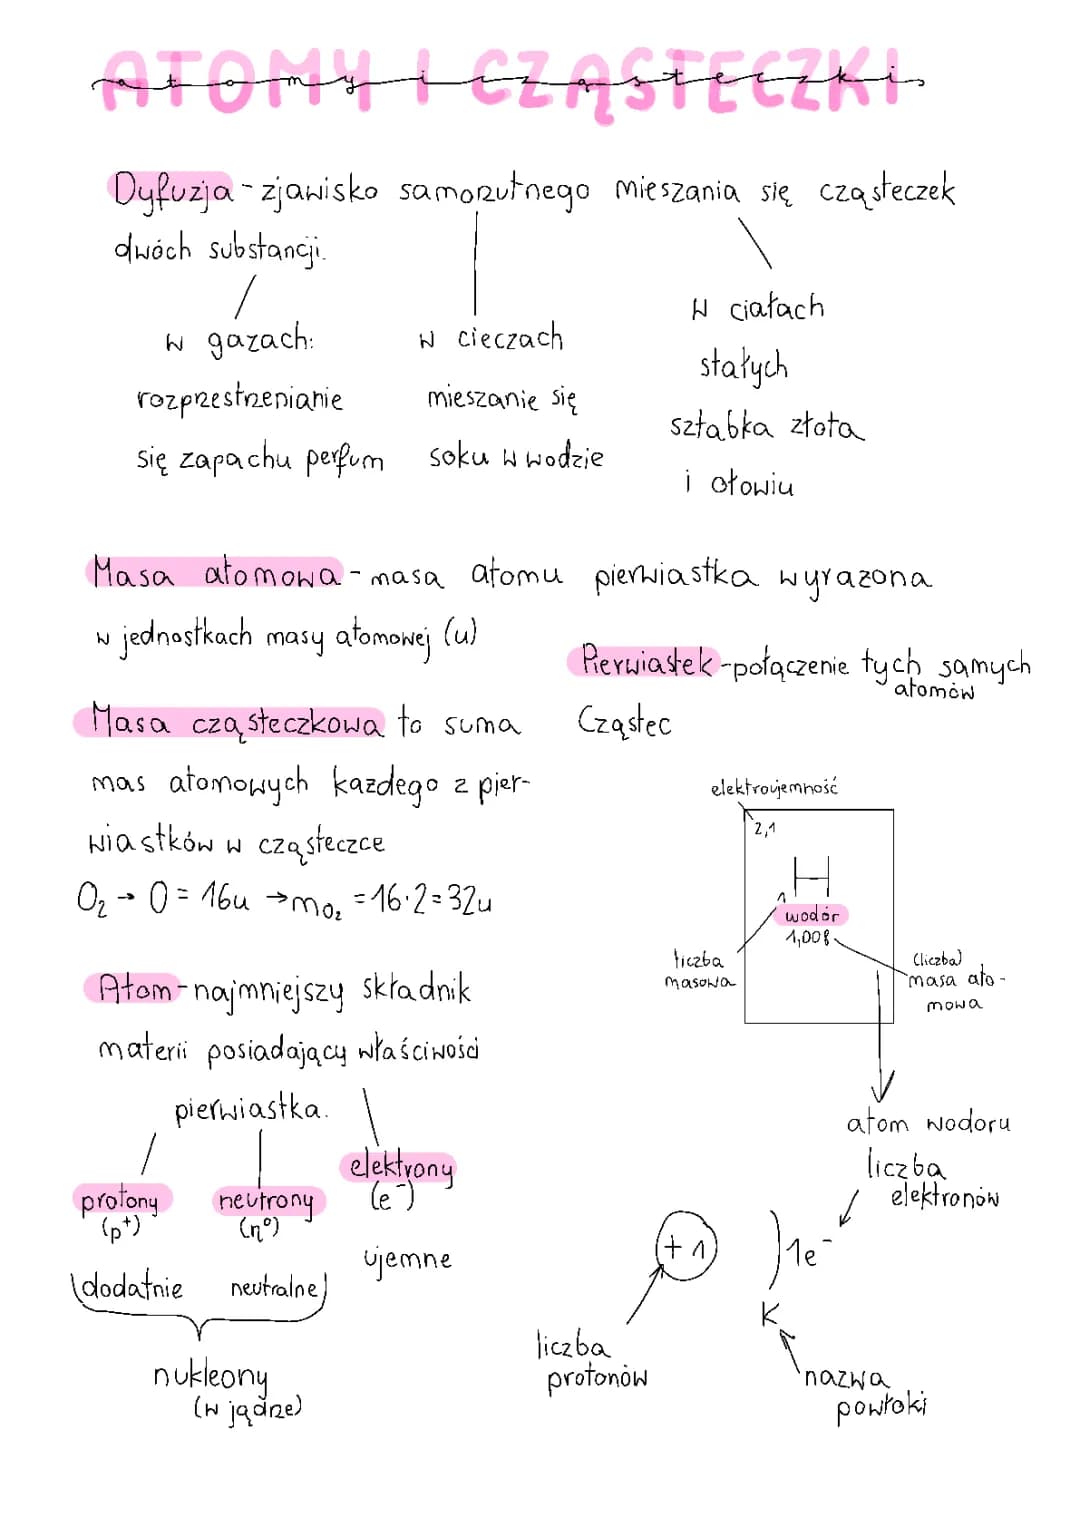 ATOMY I CZĄSTECZKI
atomy i cząsteczki
Dyfuzja - zjawisko samorzutnego mieszania się cząsteczek
dwóch substancji.
w gazach:
rozprzestrzenianie
się zapachu perfum
w cieczach
mieszanie się
soku w wodzie
w ciałach
stałych
sztabka złota
i ołowiu
Masa atomowa - masa atomu pierwiastka wyrazona
w jednostkach masy atomowej (u)
Pierwiastek - połączenie tych samych
atomów
Cząstec
Masa cząsteczkowa to suma
mas atomowych kazdego z pier-
wiastków w cząsteczce
O₂ → O = 16u → mO₂ = 16·2=32u
Atom - najmniejszy składnik
materii posiadający właściwości
pierwiastka.
protony
(p⁺)
dodatnie
neutrony
(n⁰)
neutralne
elektrony
(e⁻)
ujemne
nukleony
(w jądrze)
elektroujemność
2,1
H
1
wodór
1,008
liczba
masowa
(liczba)
masa ato-
mowa
atom wodoru
liczba
elektronów
+1
)1e⁻
K
liczba
protonów
nazwa
powłoki